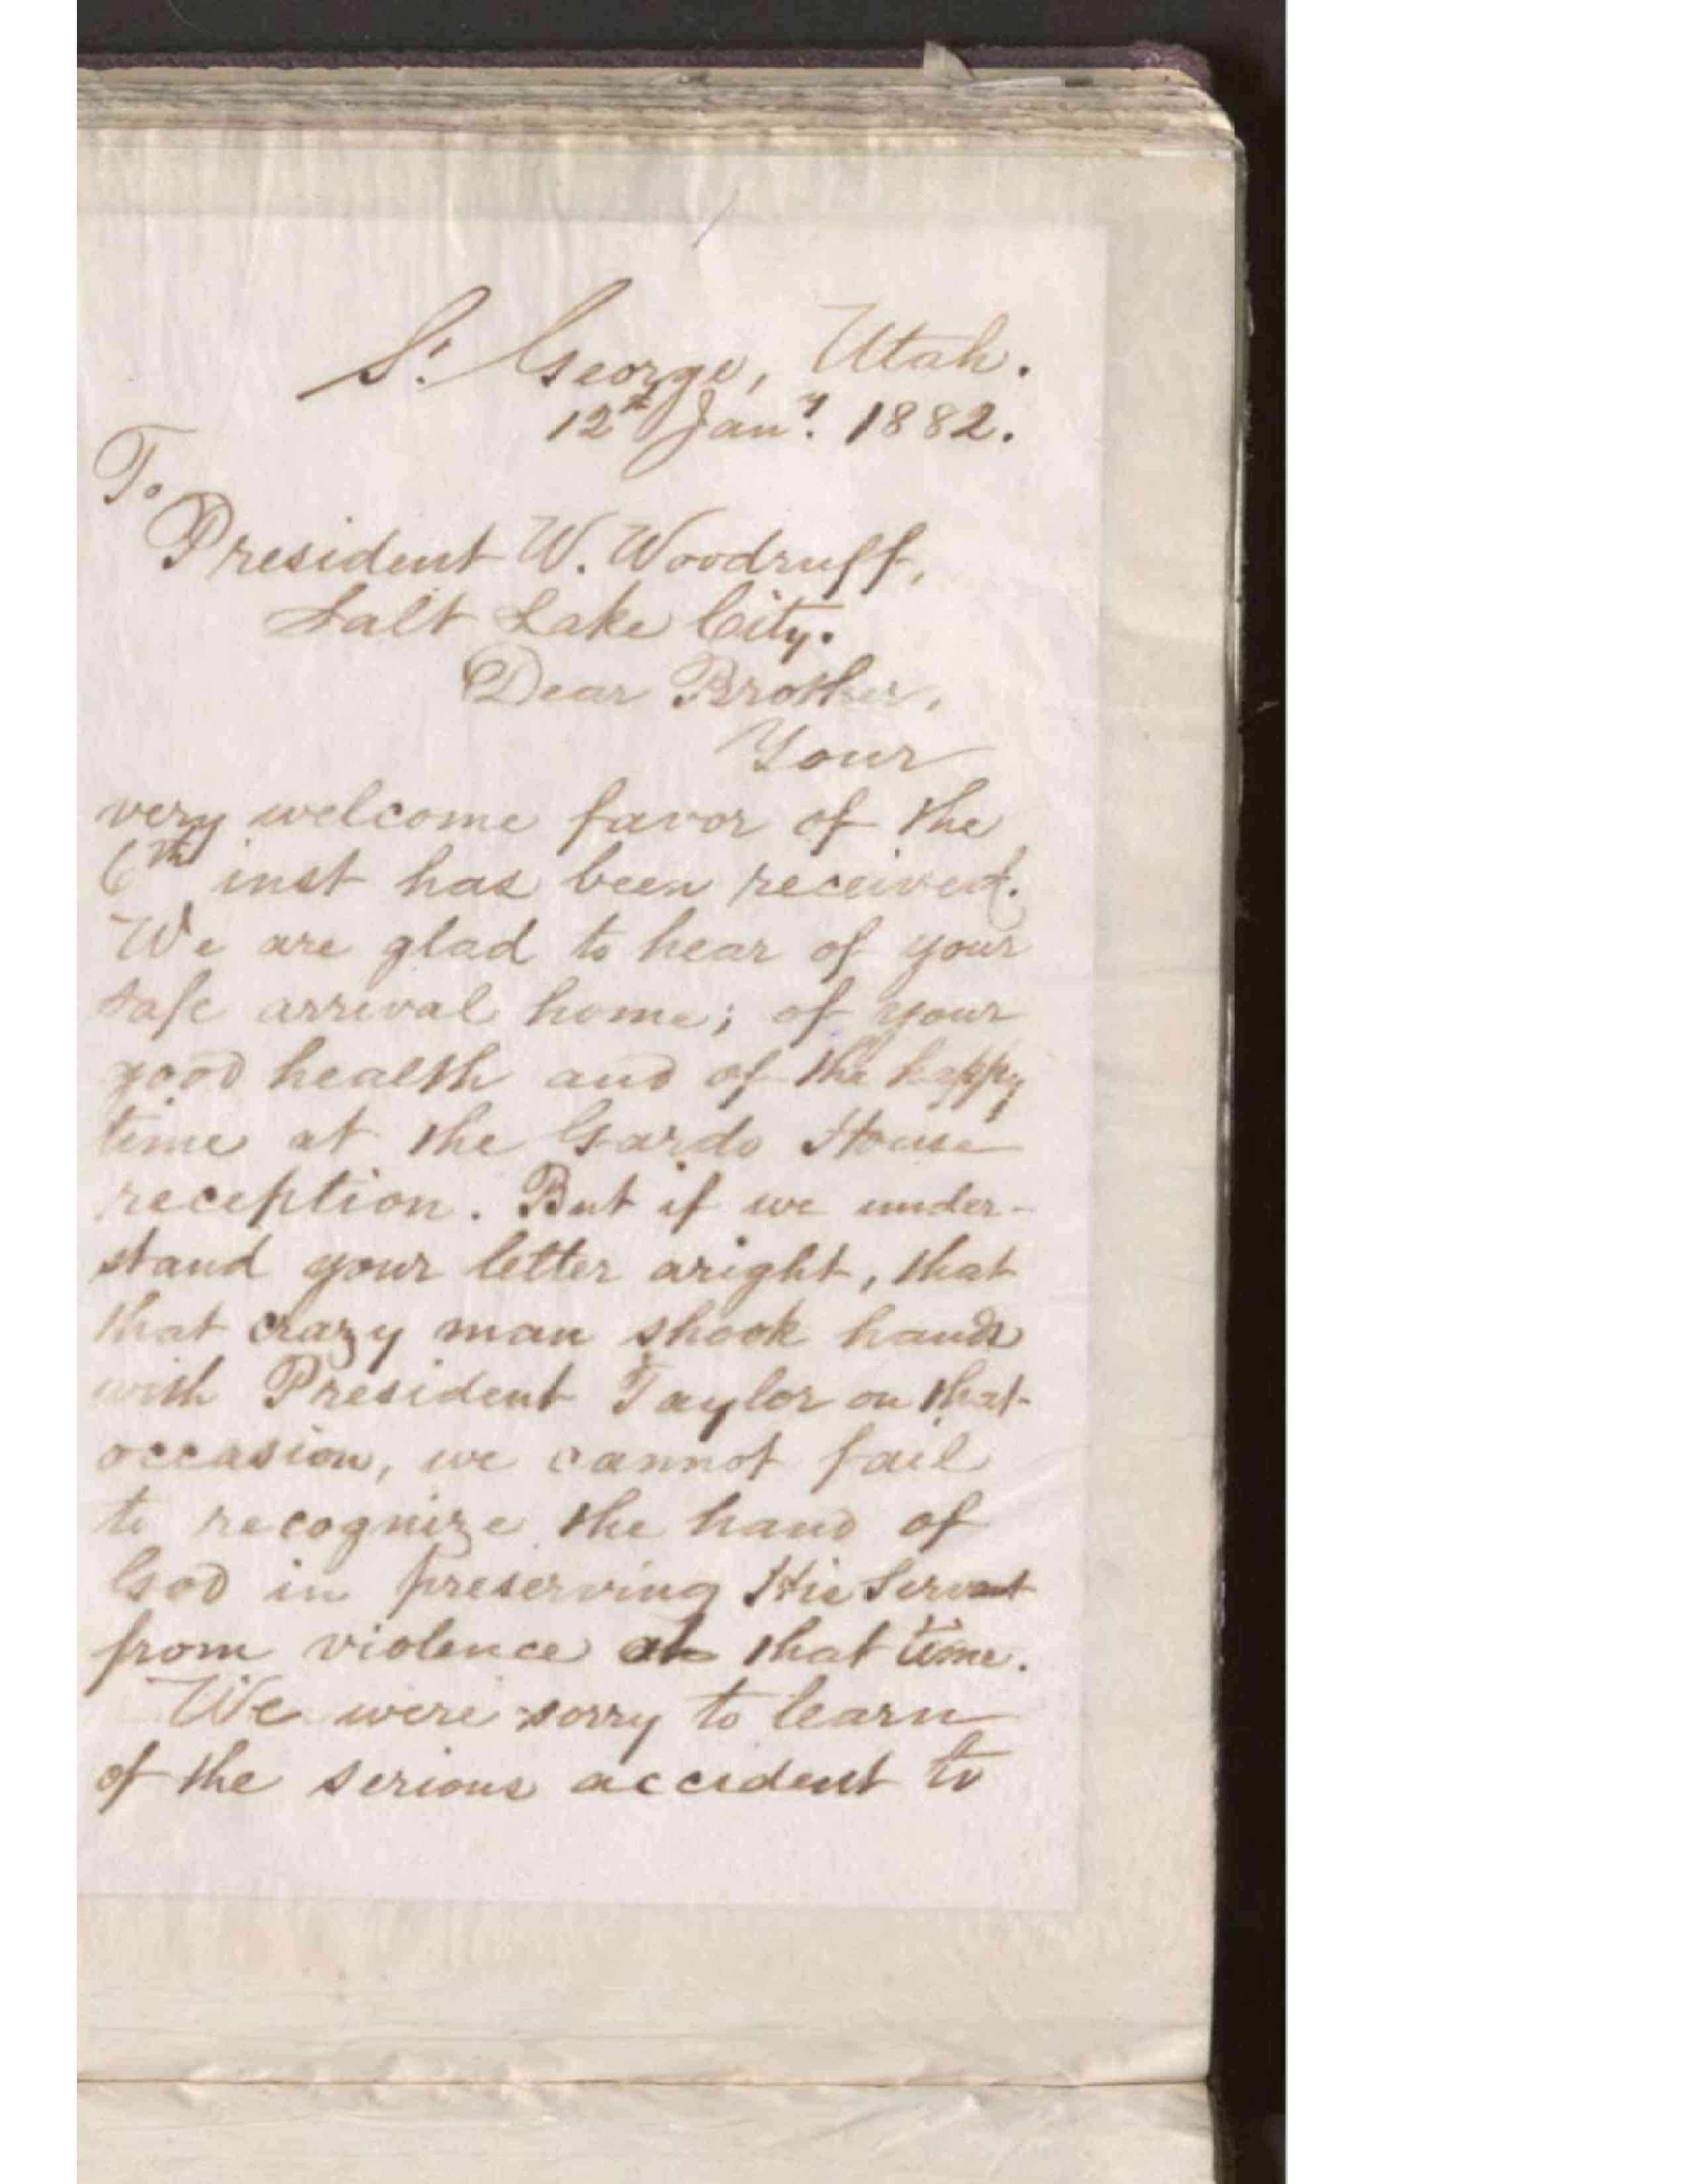 St. George, Utah.
12th Jany. 1882.
To
President W. Woodruff,
Salt Lake City.
Dear Brother,
Your
very welcome favor of the
6th inst has been received.
We are glad to hear of your
safe arrival home; of your
good health and of the happy
time at the Gardo House
reception. But if we under-
stand your letter aright, that
that crazy man shook hands
with President Taylor on that
occasion, we cannot fail
to recognize the hand of
God in preserving His Servant
from violence at that time.
We were sorry to learn
of the serious accident to